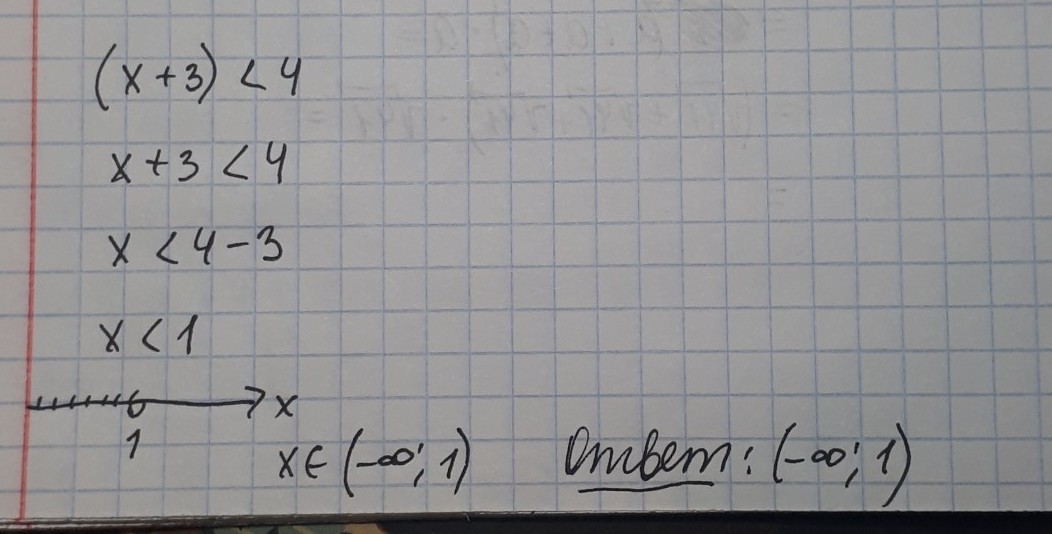 (x+3) < 4
x+3 < 4
x < 4-3
x < 1
x
1
x∈(-∞; 1) Ответ: (-∞; 1)